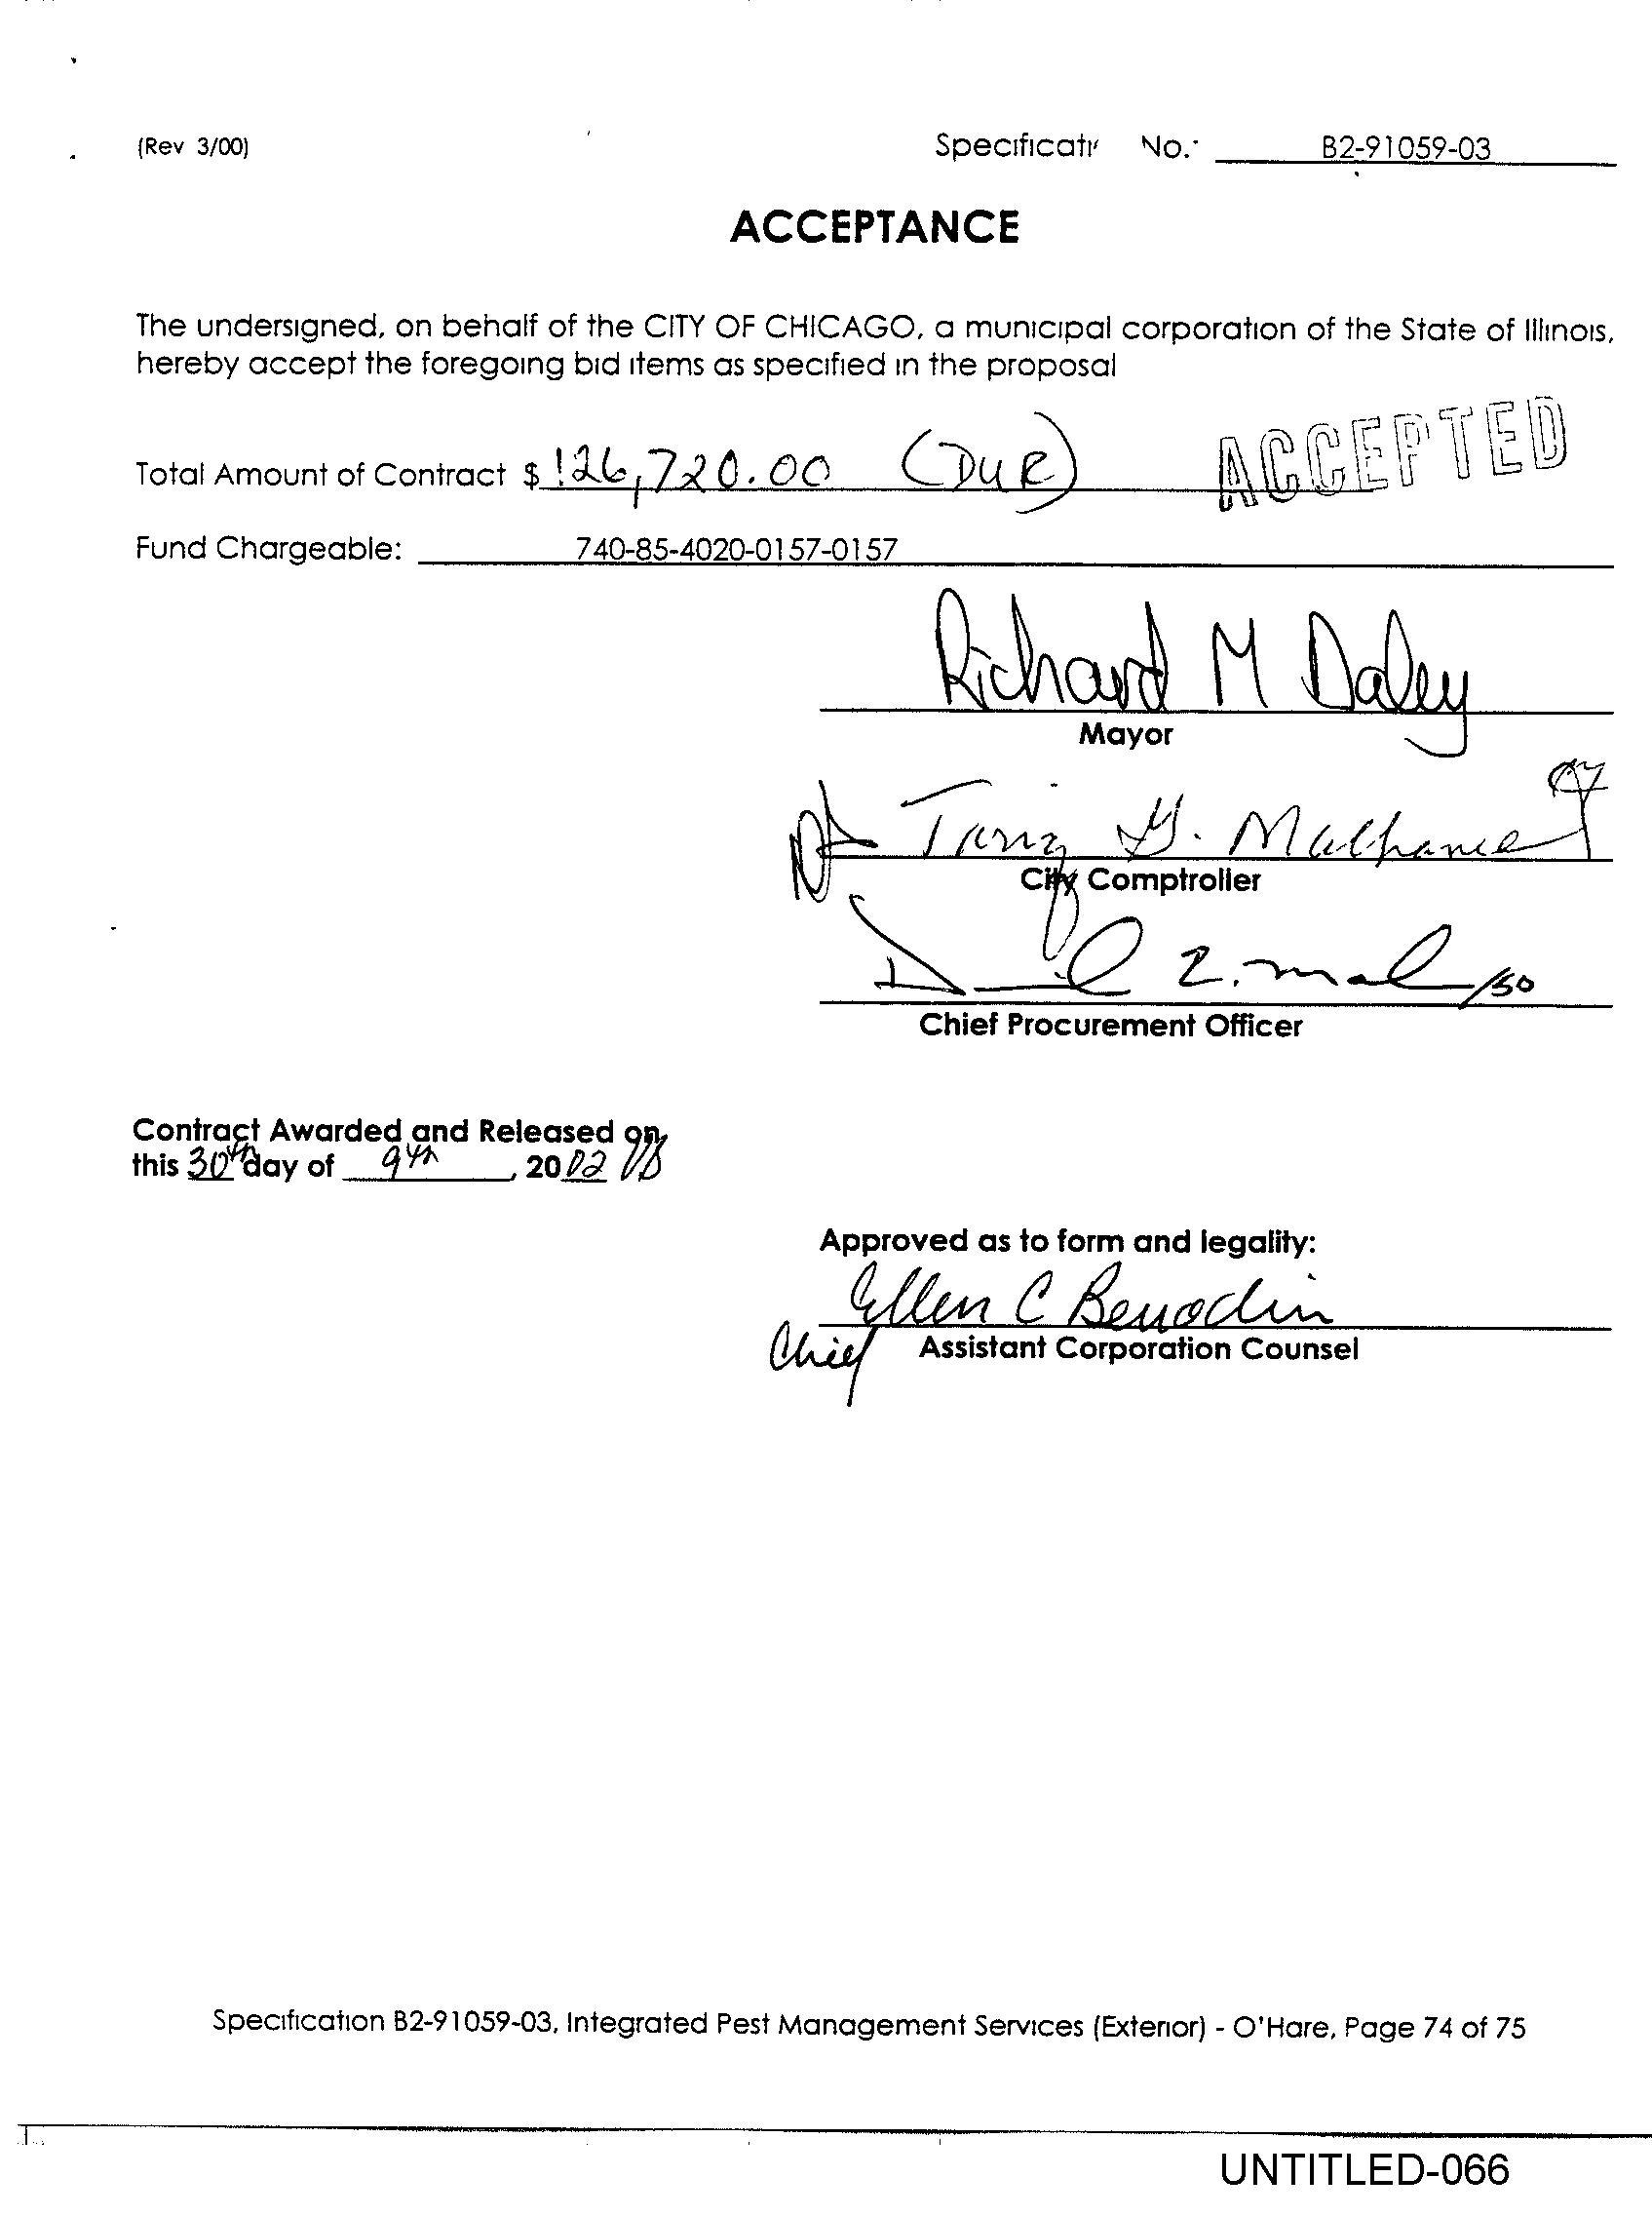 (Rev 3/00)
No.: B2-91059-03
ACCEPTANCE
The undersigned, on behalf of the CITY OF CHICAGO, a municipal corporation of the State of Illinois,
hereby accept the foregoing bid items as specified in the proposal
Total Amount of Contract $ 126,720.00 (DUR) ACCEPTED
Fund Chargeable: 740-85-4020-0157-0157
Richard M Daley
Mayor
G.
City Comptroller
/50
Chief Procurement Officer
Contract Awarded and Released on
this 30th day of 9th, 2002
Approved as to form and legality:
Ellen C
Chief Assistant Corporation Counsel
Specification B2-91059-03, Integrated Pest Management Services (Exterior) - O'Hare, Page 74 of 75
UNTITLED-066